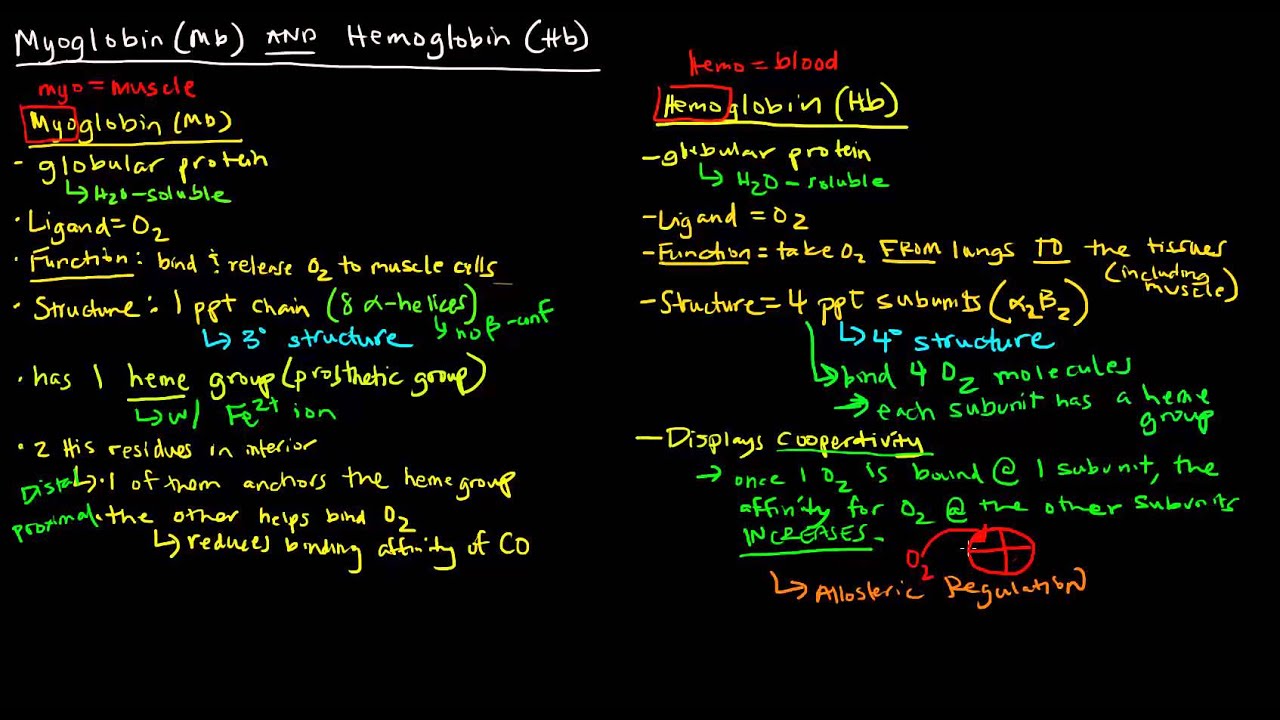 Myoglobin (Mb) AND Hemoglobin (Hb)
myo = muscle
Myoglobin (Mb)
- globular protein
↳ H2O-soluble
· Ligand = O2
· Function: bind & release O2 to muscle cells
· Structure: 1 ppt chain (8 α-helices)
↳ no β-conf
↳ 3° structure
· has 1 heme group (prosthetic group)
↳ w/ Fe2+ ion
· 2 His residues in interior
Distal ↳ · 1 of them anchors the heme group
proximal · the other helps bind O2
↳ reduces binding affinity of CO
Hemo = blood
Hemoglobin (Hb)
- globular protein
↳ H2O-soluble
- Ligand = O2
- Function = take O2 FROM lungs TO the tissues
(including muscle)
- Structure = 4 ppt subunits (α2β2)
↳ 4° structure
↳ bind 4 O2 molecules
→ each subunit has a heme
group
- Displays coopertivity
→ once 1 O2 is bound @ 1 subunit, the
affinity for O2 @ the other subunits
INCREASES.
O2
↳ Allosteric Regulation